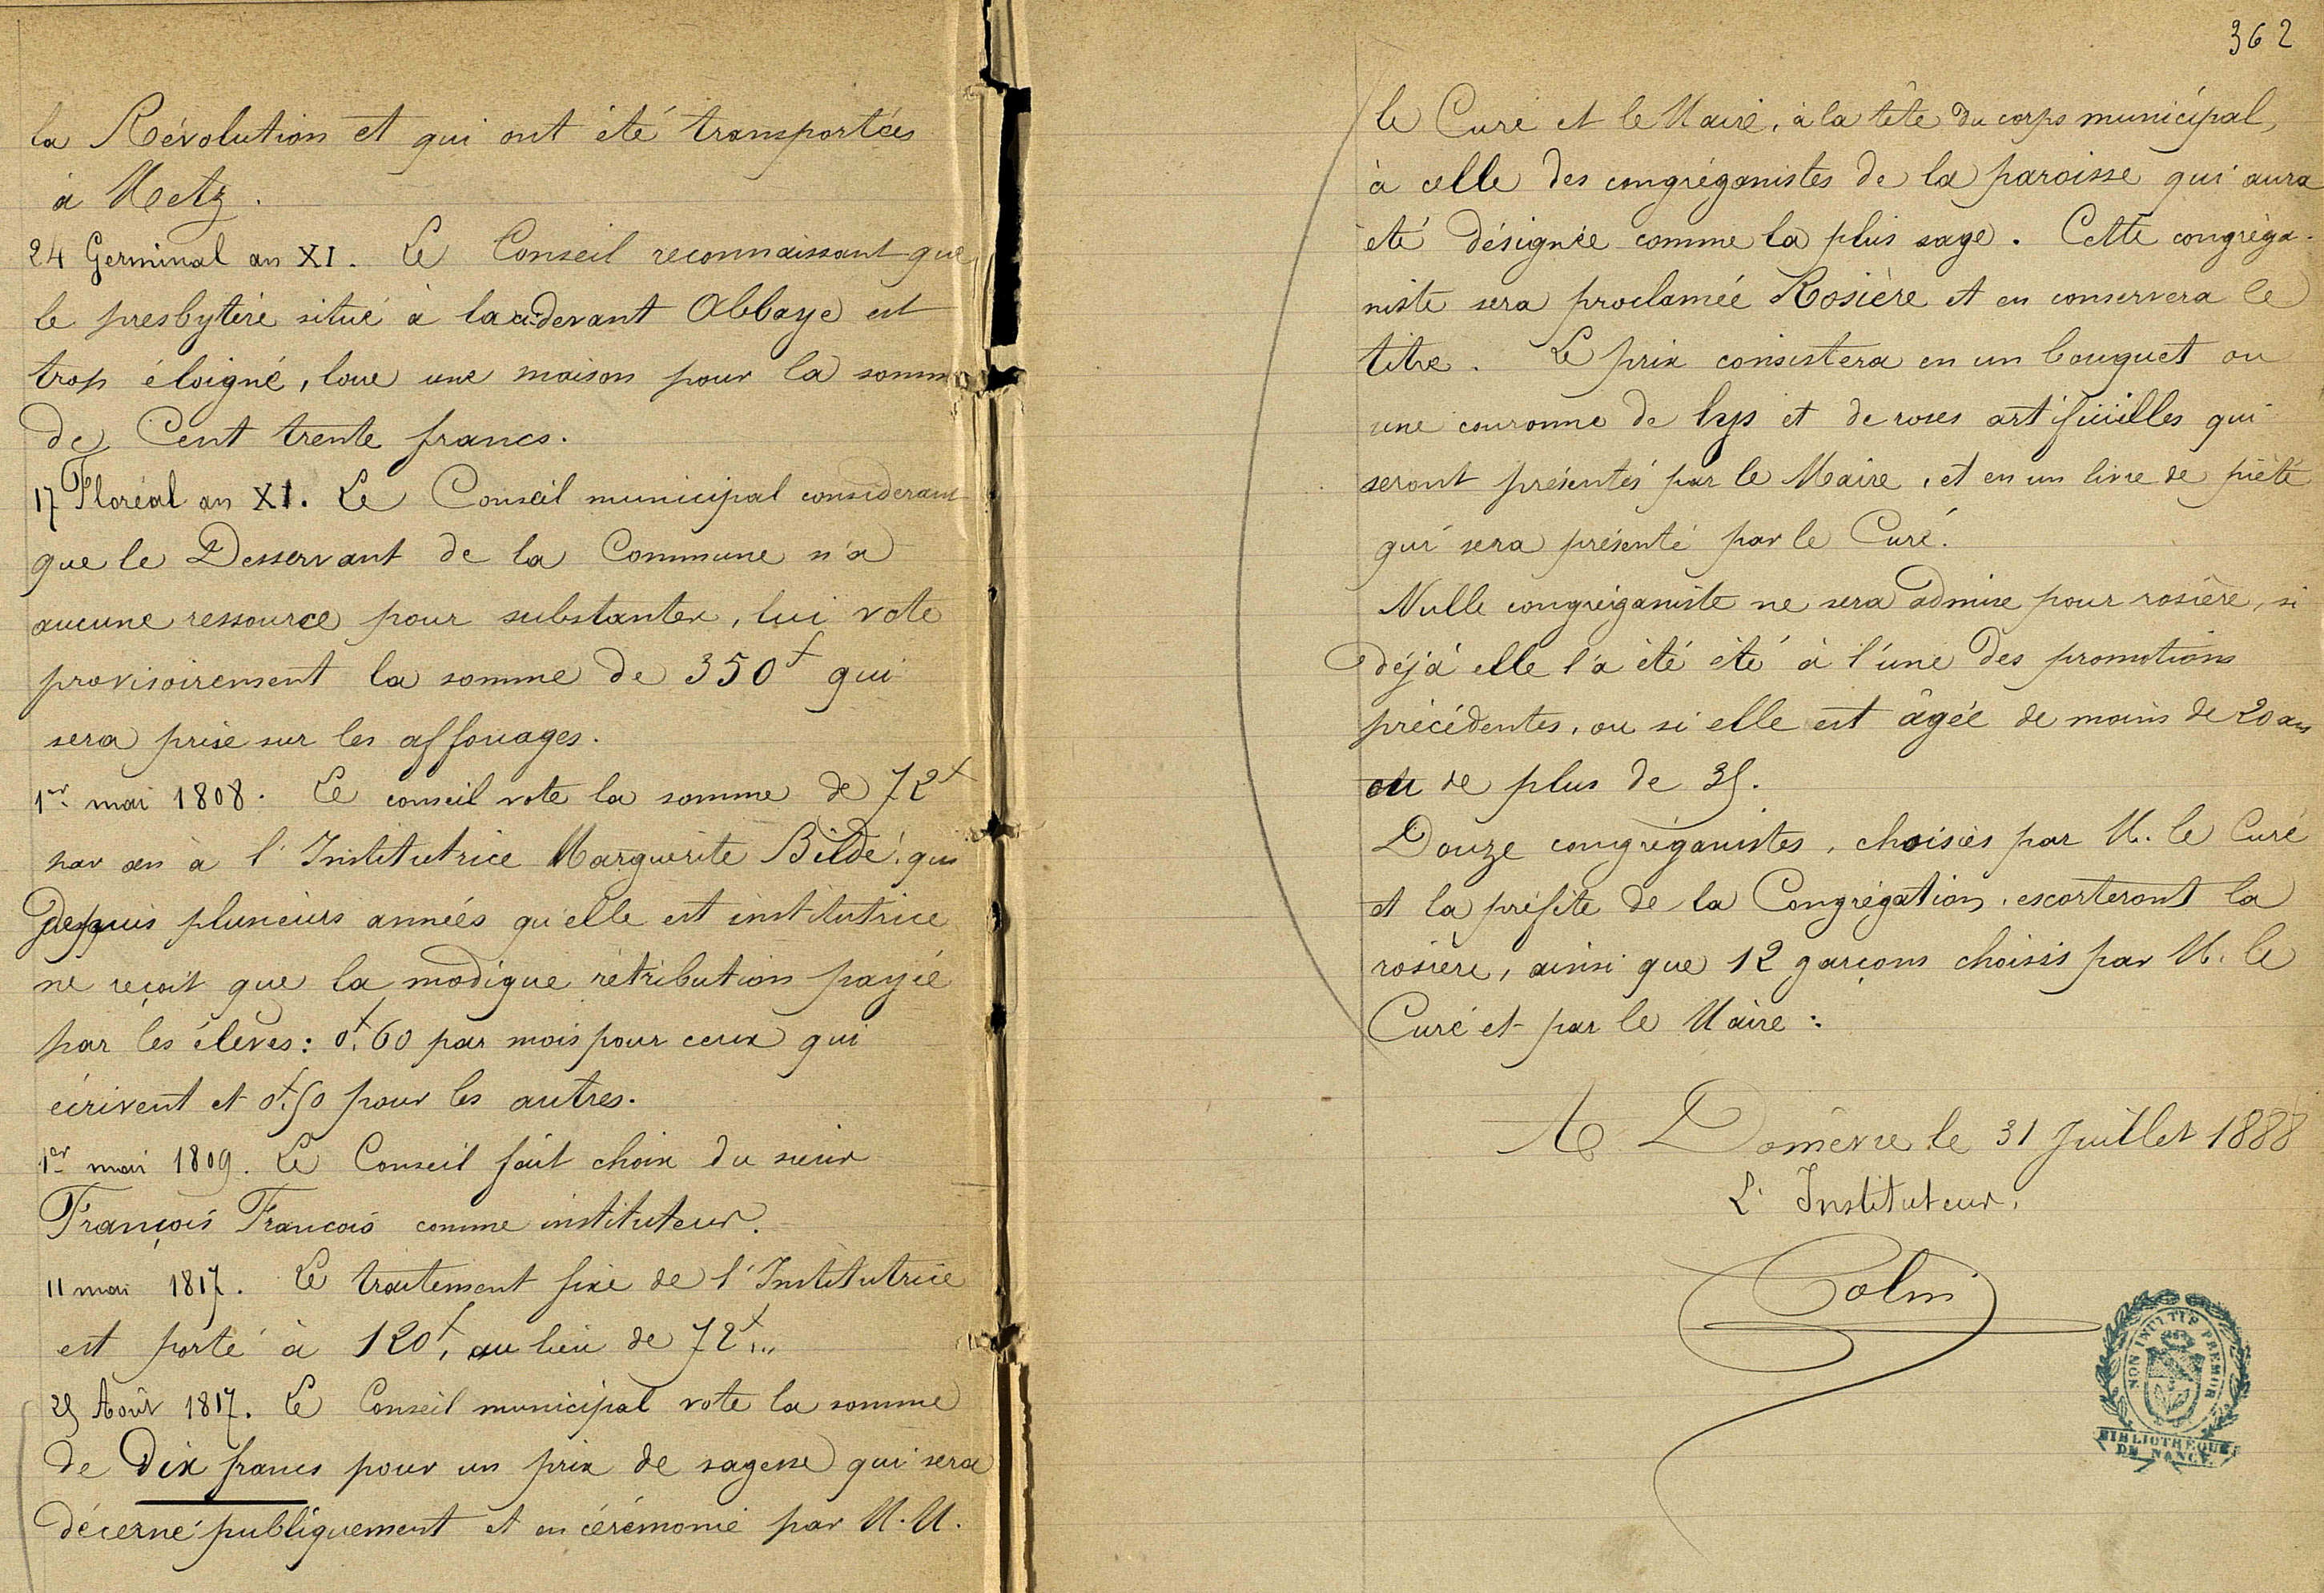 la Révolution et qui ont été transportées
à Metz.
24 Germinal an XI. Le Conseil reconnaissant que
le presbytère situé à la ci-devant Abbaye est
trop éloigné, loue une maison pour la somme
de Cent trente francs.
17 Floréal an XI. Le Conseil municipal considerant
que le Desservant de la Commune n'a
aucune ressource pour substanter, lui vote
provisoirement la somme de 350f qui
sera prise sur les affouages.
1er mai 1808. Le conseil vote la somme de 72f
par an à l'Institutrice Marguerite Bildé, qui
depuis plusieurs années qu'elle est institutrice
ne reçoit que la modique rétribution payée
par les élèves: 0f.60 par mois pour ceux qui
écrivent et 0f.50 pour les autres.
1er mai 1809. Le Conseil fait choix du sieur
François Francois comme instituteur.
11 mai 1817. Le traitement fixe de l'Institutrice
est porté à 120f, au lieu de 72f...
25 Août 1817. Le Conseil municipal vote la somme
de Dix francs pour un prix de sagesse qui sera
décerné publiquement et en cérémonie par M.M.
362
le Curé et le Maire, à la tête du corps municipal,
à celle des congréganistes de la paroisse qui aura
été désignée comme la plus sage. Cette congréga-
niste sera proclamée Rosière et en conservera le
titre. Le prix consistera en un bouquet ou
une couronne de lys et de roses artificielles qui
seront présentés par le Maire, et en un livre de piété
qui sera présenté par le Curé.
Nulle congréganiste ne sera admise pour rosière, si
déjà elle l'a été été à l'une des promotions
précédentes, ou si elle est âgée de moins de 20 ans
ou de plus de 35.
Douze congréganistes, choisies par M. le Curé
et la préfète de la Congrégation, escorteront la
rosière, ainsi que 12 garçons choisis par M. le
Curé et par le Maire:
A Domèvre le 31 Juillet 1888
L'Instituteur,
Colin
NON INULTUS PREMOR
BIBLIOTHÈQUE
DE NANCY